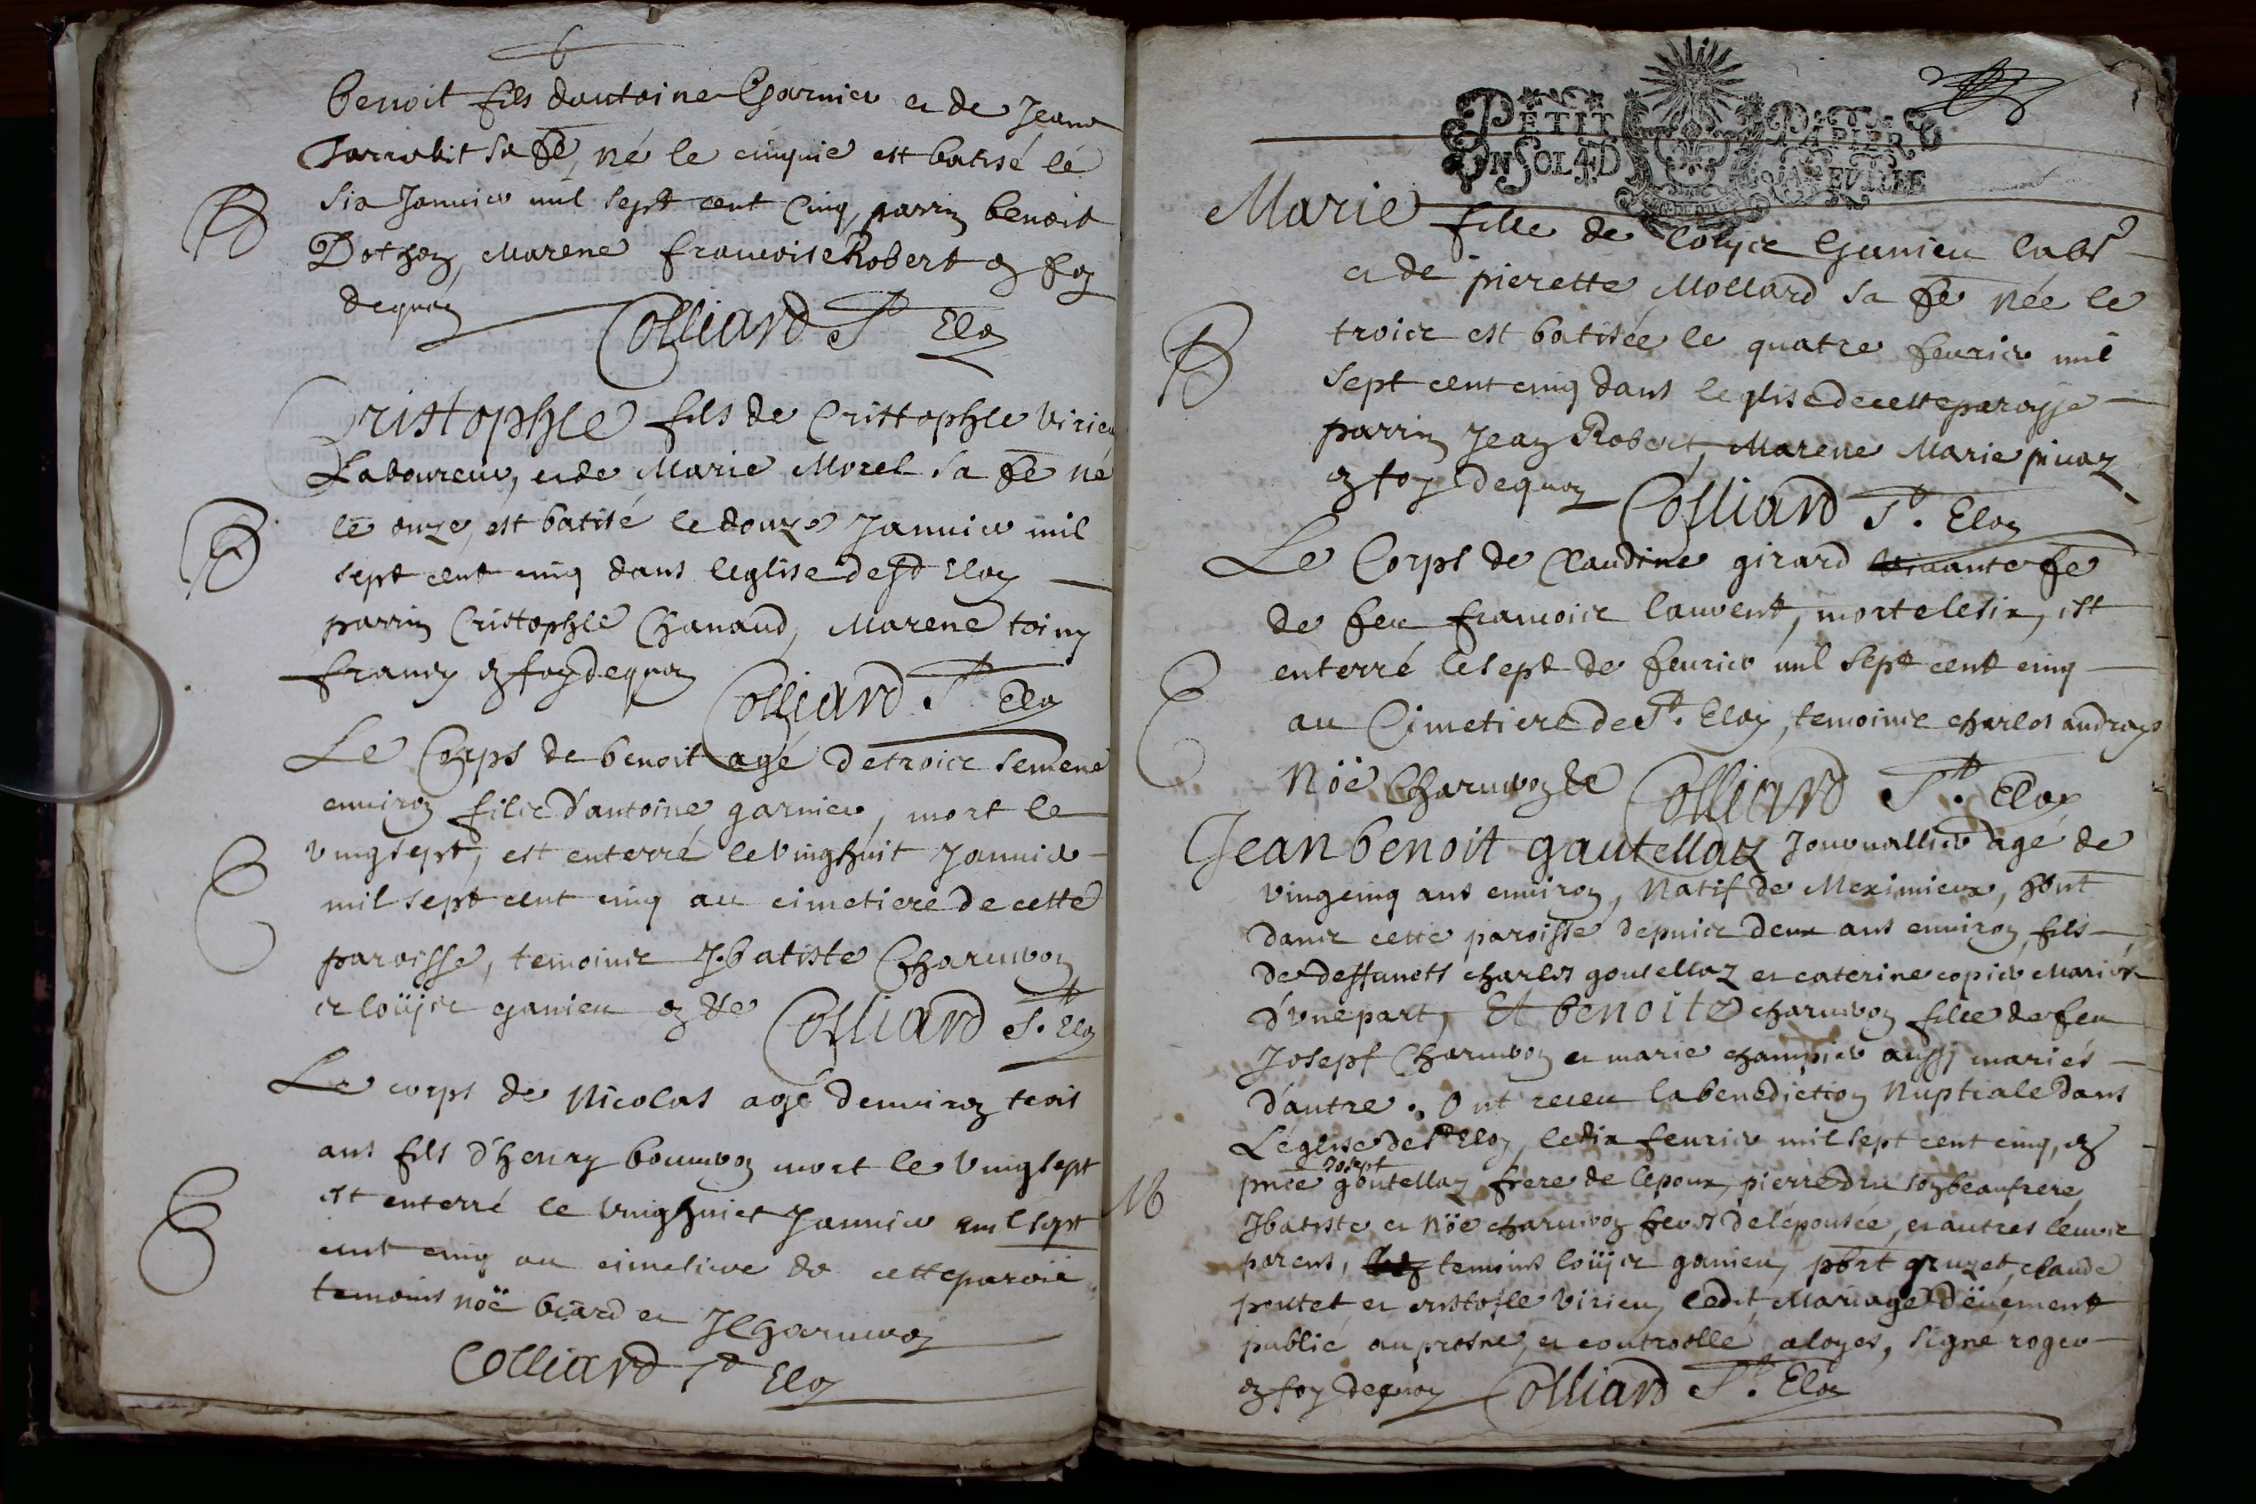 benoit fils dantoine Garnier et de Jeane
sa fe, né le cinquie est batisé le
B
six Janvier mil sept cent Cinq, parrin benoit
Marene francoise Robert en foy
dequoy
Colliard St Eloy
Cristophle fils de Cristophle Virieu
Laboureur, et de Marie Morel sa fe né
B
le onze, est batisé le douze Janvier mil
sept cent cinq dans leglise de St Eloy
parrin Cristophle Chanaud, Marene toiny
francy en foy dequoy
Colliard St Eloy
Le Corps de benoit agé de troiz semene
environ filz d'antoine garnier, mort le
E
vingsept, est enterré le vinghuit Janvier
mil sept cent cinq au cimetiere de cette
paroisse, temoinz J. batiste Charuvon
et loüyz ganieu
Colliard St. Eloy
Le corps de Nicolas agé denviron trois
ans fils d'henry bouuvon mort le vingsept
E
est enterré le vinghuict Janvier mil sept
cent cinq au cimetiere de cette paroie
temoins noë biard et J Charuvon
Colliard St Eloy
PETIT PAPIER
UN SOL 4 D LA FEUILLE
Marie fille de louyz Ganieu labr
et de pierette Mollard sa fe née le
B
troiz est batisée le quatre fevrier mil
sept cent cinq dans leglise de cette paroysse
parrin Jean Robert, Marene Marie pivaz
en foy dequoy
Colliard St. Eloy
Le Corps de Claudine girard fe
de feu francoiz lauvent, morte le six, est
E
enterré le sept de fevrier mil sept cent cinq
au Cimetiere de St. Eloy, temoinz charles
Nöë Charuvon
Colliard St. Eloy
Jean benoit gautellaz Journallier agé de
vingcinq ans environ, Natif de Meximieux, hbnt
danz cette paroisse depuiz deux ans environ, fils
de deffuncts charles goutellaz et caterine copier Mariés
d'une part, Et benoite charuvon fille de feu
Josepf Charuvon et marie champier aussy mariés
d'autre. Ont receu la benediction Nuptiale dans
L'église de St Eloy, le dix fevrier mil sept cent cinq, en
M
pnce josept goutellaz frere de lepoux, pierre dru son beaufrere,
Jbatiste et Nöe charuvon freres de lépousée, et autres leurz
parens, temoins loüyz ganieu, gruzet, claude
pertet et cristofle virieu, ledit Mariage dëuement
publié au prosne, et controollé a loyes, signé roger
en foy dequoy
Colliard St. Eloy